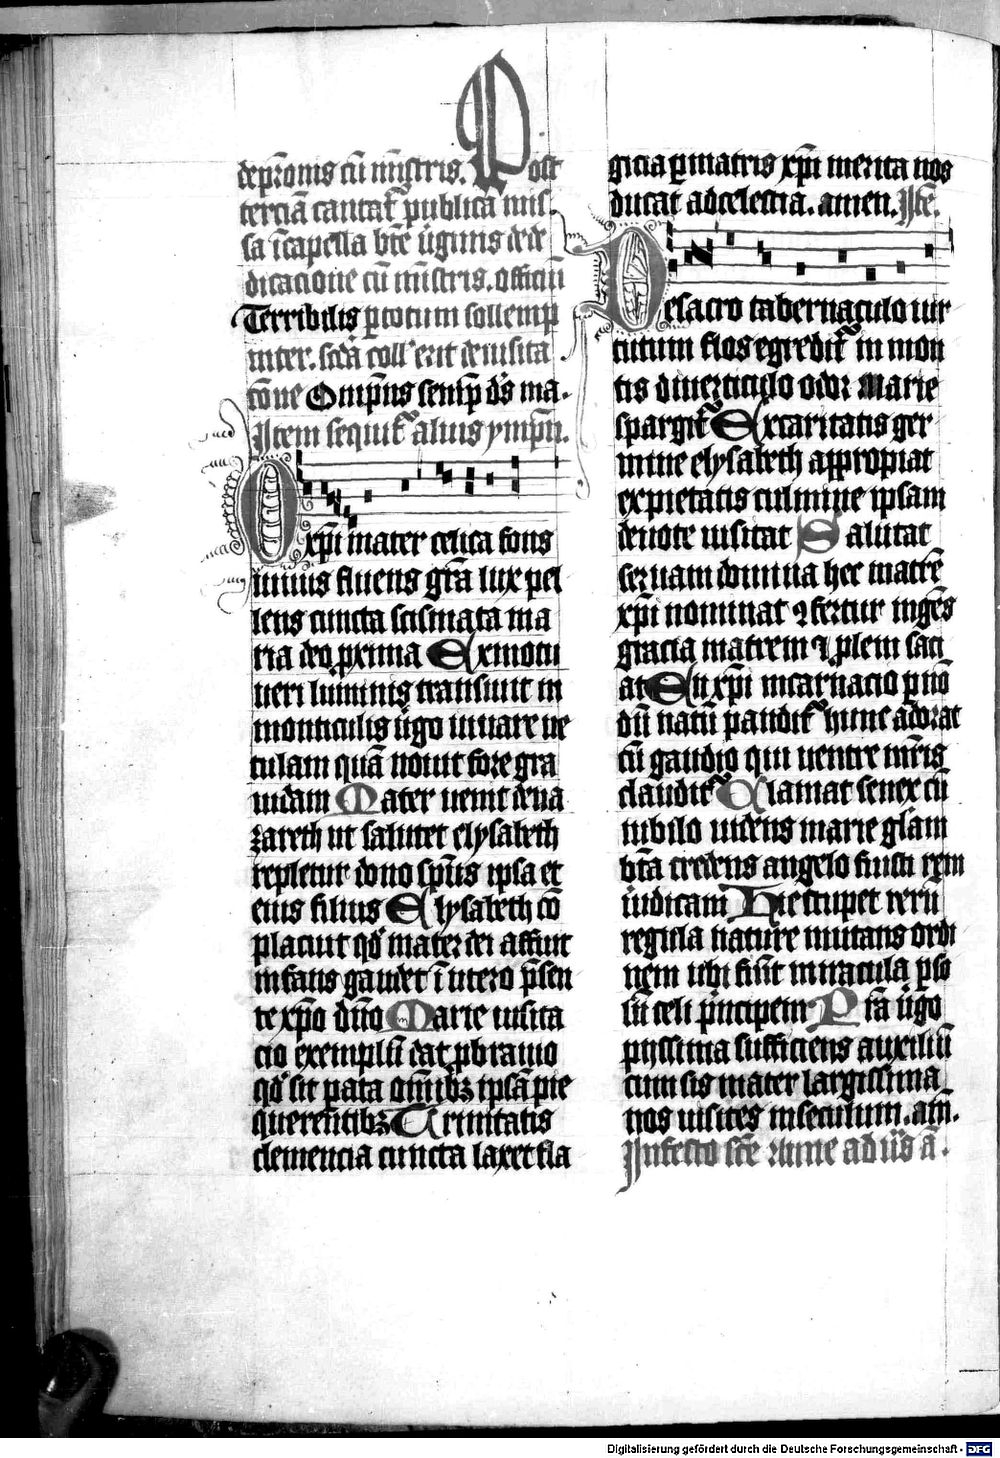 dep̄onis cū mīstris. Post
terciā cantat̄ publica mis
sa ī capella btē v̄gīnis de de
dicacione cū mīstris. officiū
Terribilis ꝑ totum sollemp
niter. scd̄a coll' erit de uisita
cōne Omp̄ns semp̄ d̄s ma.
Item sequit̄ alius ympn̄.
O xp̄i mater celica fons
uiuus fluens gr̄a lux pel
lens cuncta scismata ma
ria deo ꝓxima Exmotu
ueri luminis transiuit in
monticulis v̄go iuuare ve
tulam quā nouit fore gra
uidam Mater uenit de na
zareth ut salutet elysabeth
repletur dono sp̄us ipsa et
eius filius Elysabeth cō
placuit qd̄ mater dei affuit
infans gaudet ī utero p̄sen
te xp̄o dn̄o Marie uisita
cio exemplū dat ꝓbrauio
qd̄ sit pata om̄ibꝫ ipsā pie
querentibꝫ Trinitatis
clemencia cuncta laxet fla
gicia ꝑ matris xp̄i merita nos
ducat ad celestia. amen. Itē.
De sacro tabernaculo uir
tutum flos egredit̄ in mon
tis diuerticulo odor Marie
spargit̄ Ex caritatis ger
mine elysabeth appropiat
ex pietatis culmine ipsam
deuote uisitat Salutat
seruam domina hec matrē
xp̄i nominat ⁊ fertur ingēs
gracia matrem ⁊ ꝓlem saci
at En xp̄i incarnacio ꝑ nō
dū natū pandit̄ hunc adorat
cū gaudio qui uentre mr̄is
claudit̄ Clamat senex cū
iubilo uidens marie gl̄am
bt̄a credens angelo fiusti rem
iudicam Hic stupet rerū
regula nature mutans ordi
nem ubi fiūt miracula ꝑ so
lū celi p̄ncipem Ip̄a v̄go
pijssima sufficiens auxiliū
cum sis mater largissima
nos uisites in seculum. am̄.
In festo sc̄e Anne ad vs̄ a.
Digitalisierung gefördert durch die Deutsche Forschungsgemeinschaft - DFG